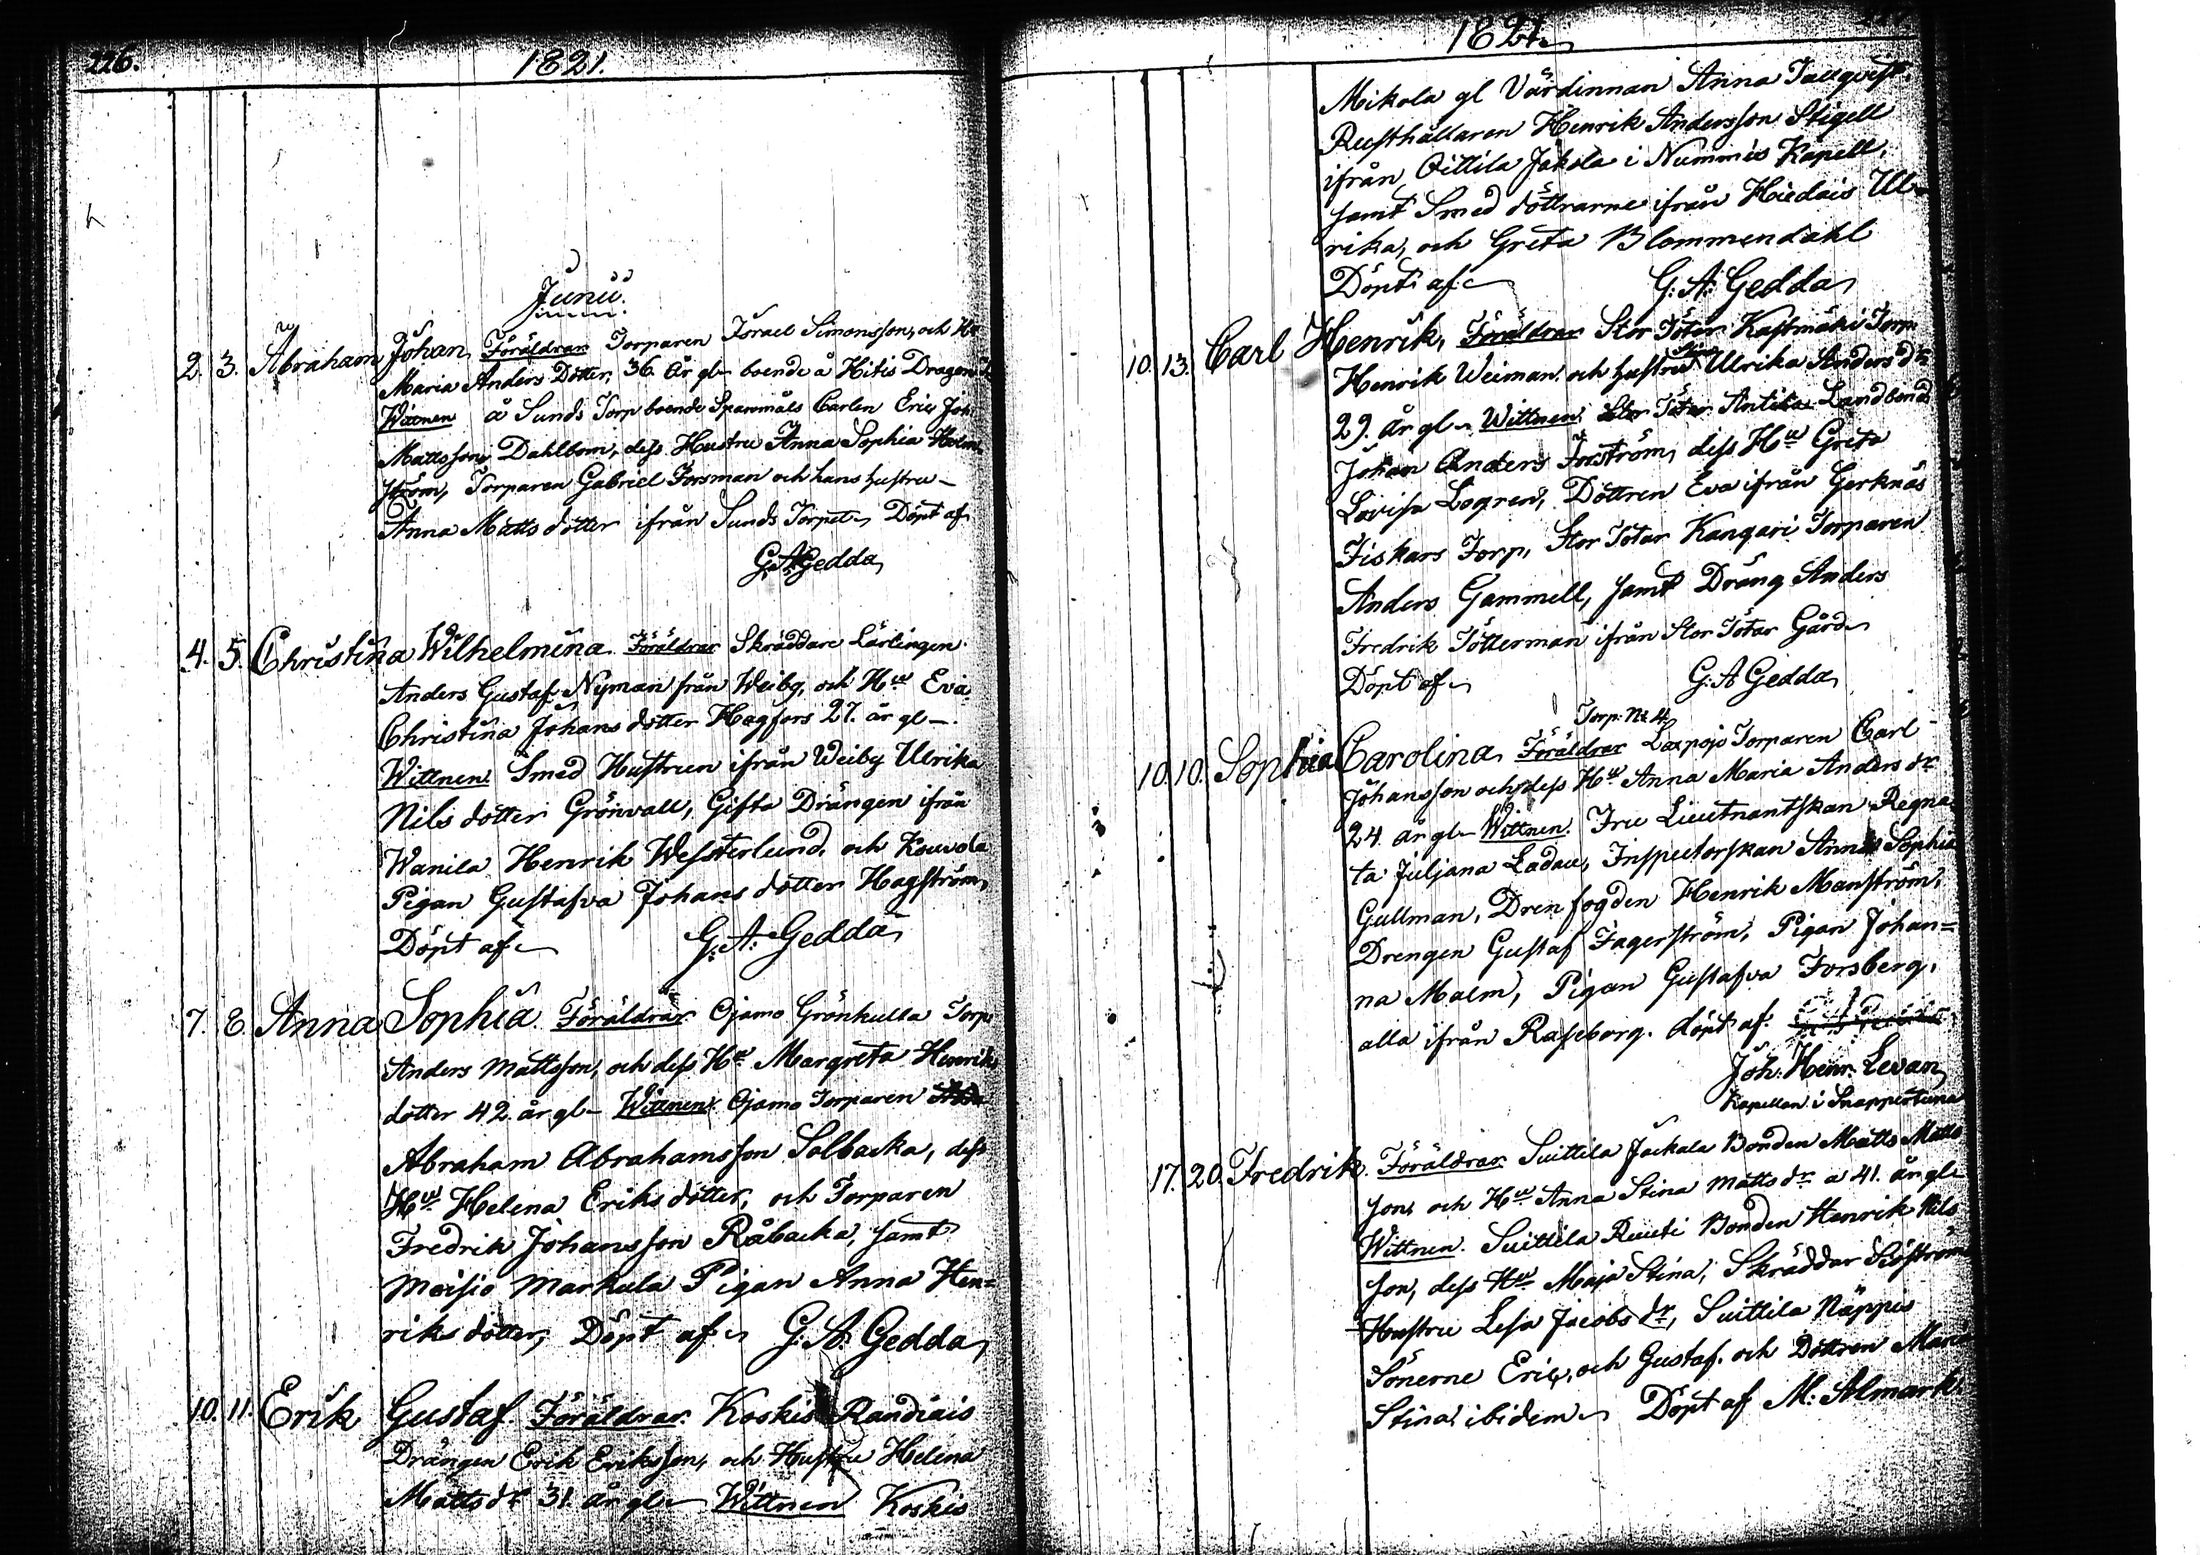 226.
1821.
Junii.
2. 3. Abraham Johan, Föräldrar Torparen Israel Simonsson, och Hu
Maria Anders Dotter, 36. år gl- boende å Hitis Dragon
Wittnen å Sunds Torp boende Spanmåls Carlen Eric Joh
Mattsson Dahlbom, dess Hustru Anna Sophia Holm
ström, Torparen Gabriel Forsman och hans hustru-
Anna Matts dotter ifrån Sunds Torpet Döpt af
G.A. Gedda
4. 5. Christina Wilhelmina. Föräldrar Skräddare Lärlingen
Anders Gustaf Nyman från Weiby, och Hu Eva
Christina Johans dotter Hagfors 27. år gl-.
Wittnen Smed Hustrun ifrån Weiby Ulrika
Nils dotter Grönvall, Gifta Drängen ifrån
Wanila Henrik Wessterlund, och Kouvola
Pigan Gustafva Johans dotter Hagström,
Döpt af G. A. Gedda
7. 8. Anna Sophia. Föräldrar Ojamo Grönkulla Torp.
Anders Mattsson, och dess Hu Margreta Henriks
dotter 42 år gl- Wittnen Ojamo Torparen
Abraham Abrahamsson Solbacka, dess
Hu Helena Eriks dotter, och Torparen
Fredrik Johansson Råbacka, samt
Moisio Markula Pigan Anna Hen=
riks dotter, Döpt af G. A. Gedda
10. 11. Erik Gustaf. Föräldrar Koskis Randiais
Drängen Erik Eriksson, och Hustru Helena
Matts dr 31 år gl- Wittnen Koskis
1821.
Mikola gl Värdinnan Anna Tallqvist.
Rusthållaren Henrik Andersson Stigell
ifrån Oittila Jakola i Nummis Kapell,
samt Smed döttrarne ifrån Hiedais Ul-
rika, och Greta Blommendahl
Döpt af G. A. Gedda
10. 13. Carl Henrik, Föräldrar Stor Tötar Kastmäki Torp.
Henrik Weiman och hustru Stina Ulrika Anders dtr
29. år gl- Wittnen Stor Tötar Antila Landbond
Johan Anders Forström, dess Hu Greta
Lovisa Logren, Döttren Eva ifrån Gerknäs
Fiskars Torp, Stor Totar Kangari Torparen
Anders Gammell, samt Dräng Anders
Fredrik Tötterman ifrån Stor Tötar Gård
Döpt af G. A Gedda
Torp. No 4.
10. 10. Sophia Carolina Föräldrar Laxpojo Torparen Carl
Johansson och dess Hu Anna Maria Anders dr
24 år gl- Wittnen. Fru Lieutnantskan Regna
ta Juljana Ladau, Inspectorskan Anna Sophia
Gullman, Dren fogden Henrik Manström,
Drengen Gustaf Fagerström, Pigan Johan=
na Malm, Pigan Gustafva Forsberg,
alla ifrån Raseborg. döpt af.
Joh. Henr. Levan
Kapellan i Snappertuna
17. 20. Fredrik. Föräldrar Suittila Jackala Bonden Matts Matts
son, och Hu Anna Stina Matts dr a 41. år gl-
Wittnen. Suittila Ruuti Bonden Henrik Nils
son, dess Hu Maja Stina, Skräddar Siöströms
Hustru Lesa Jacobs dr, Suittila Näppis
Sönerne Eric, och Gustaf. och Döttren Maria
Stina ibidem Döpt af M. Almark.